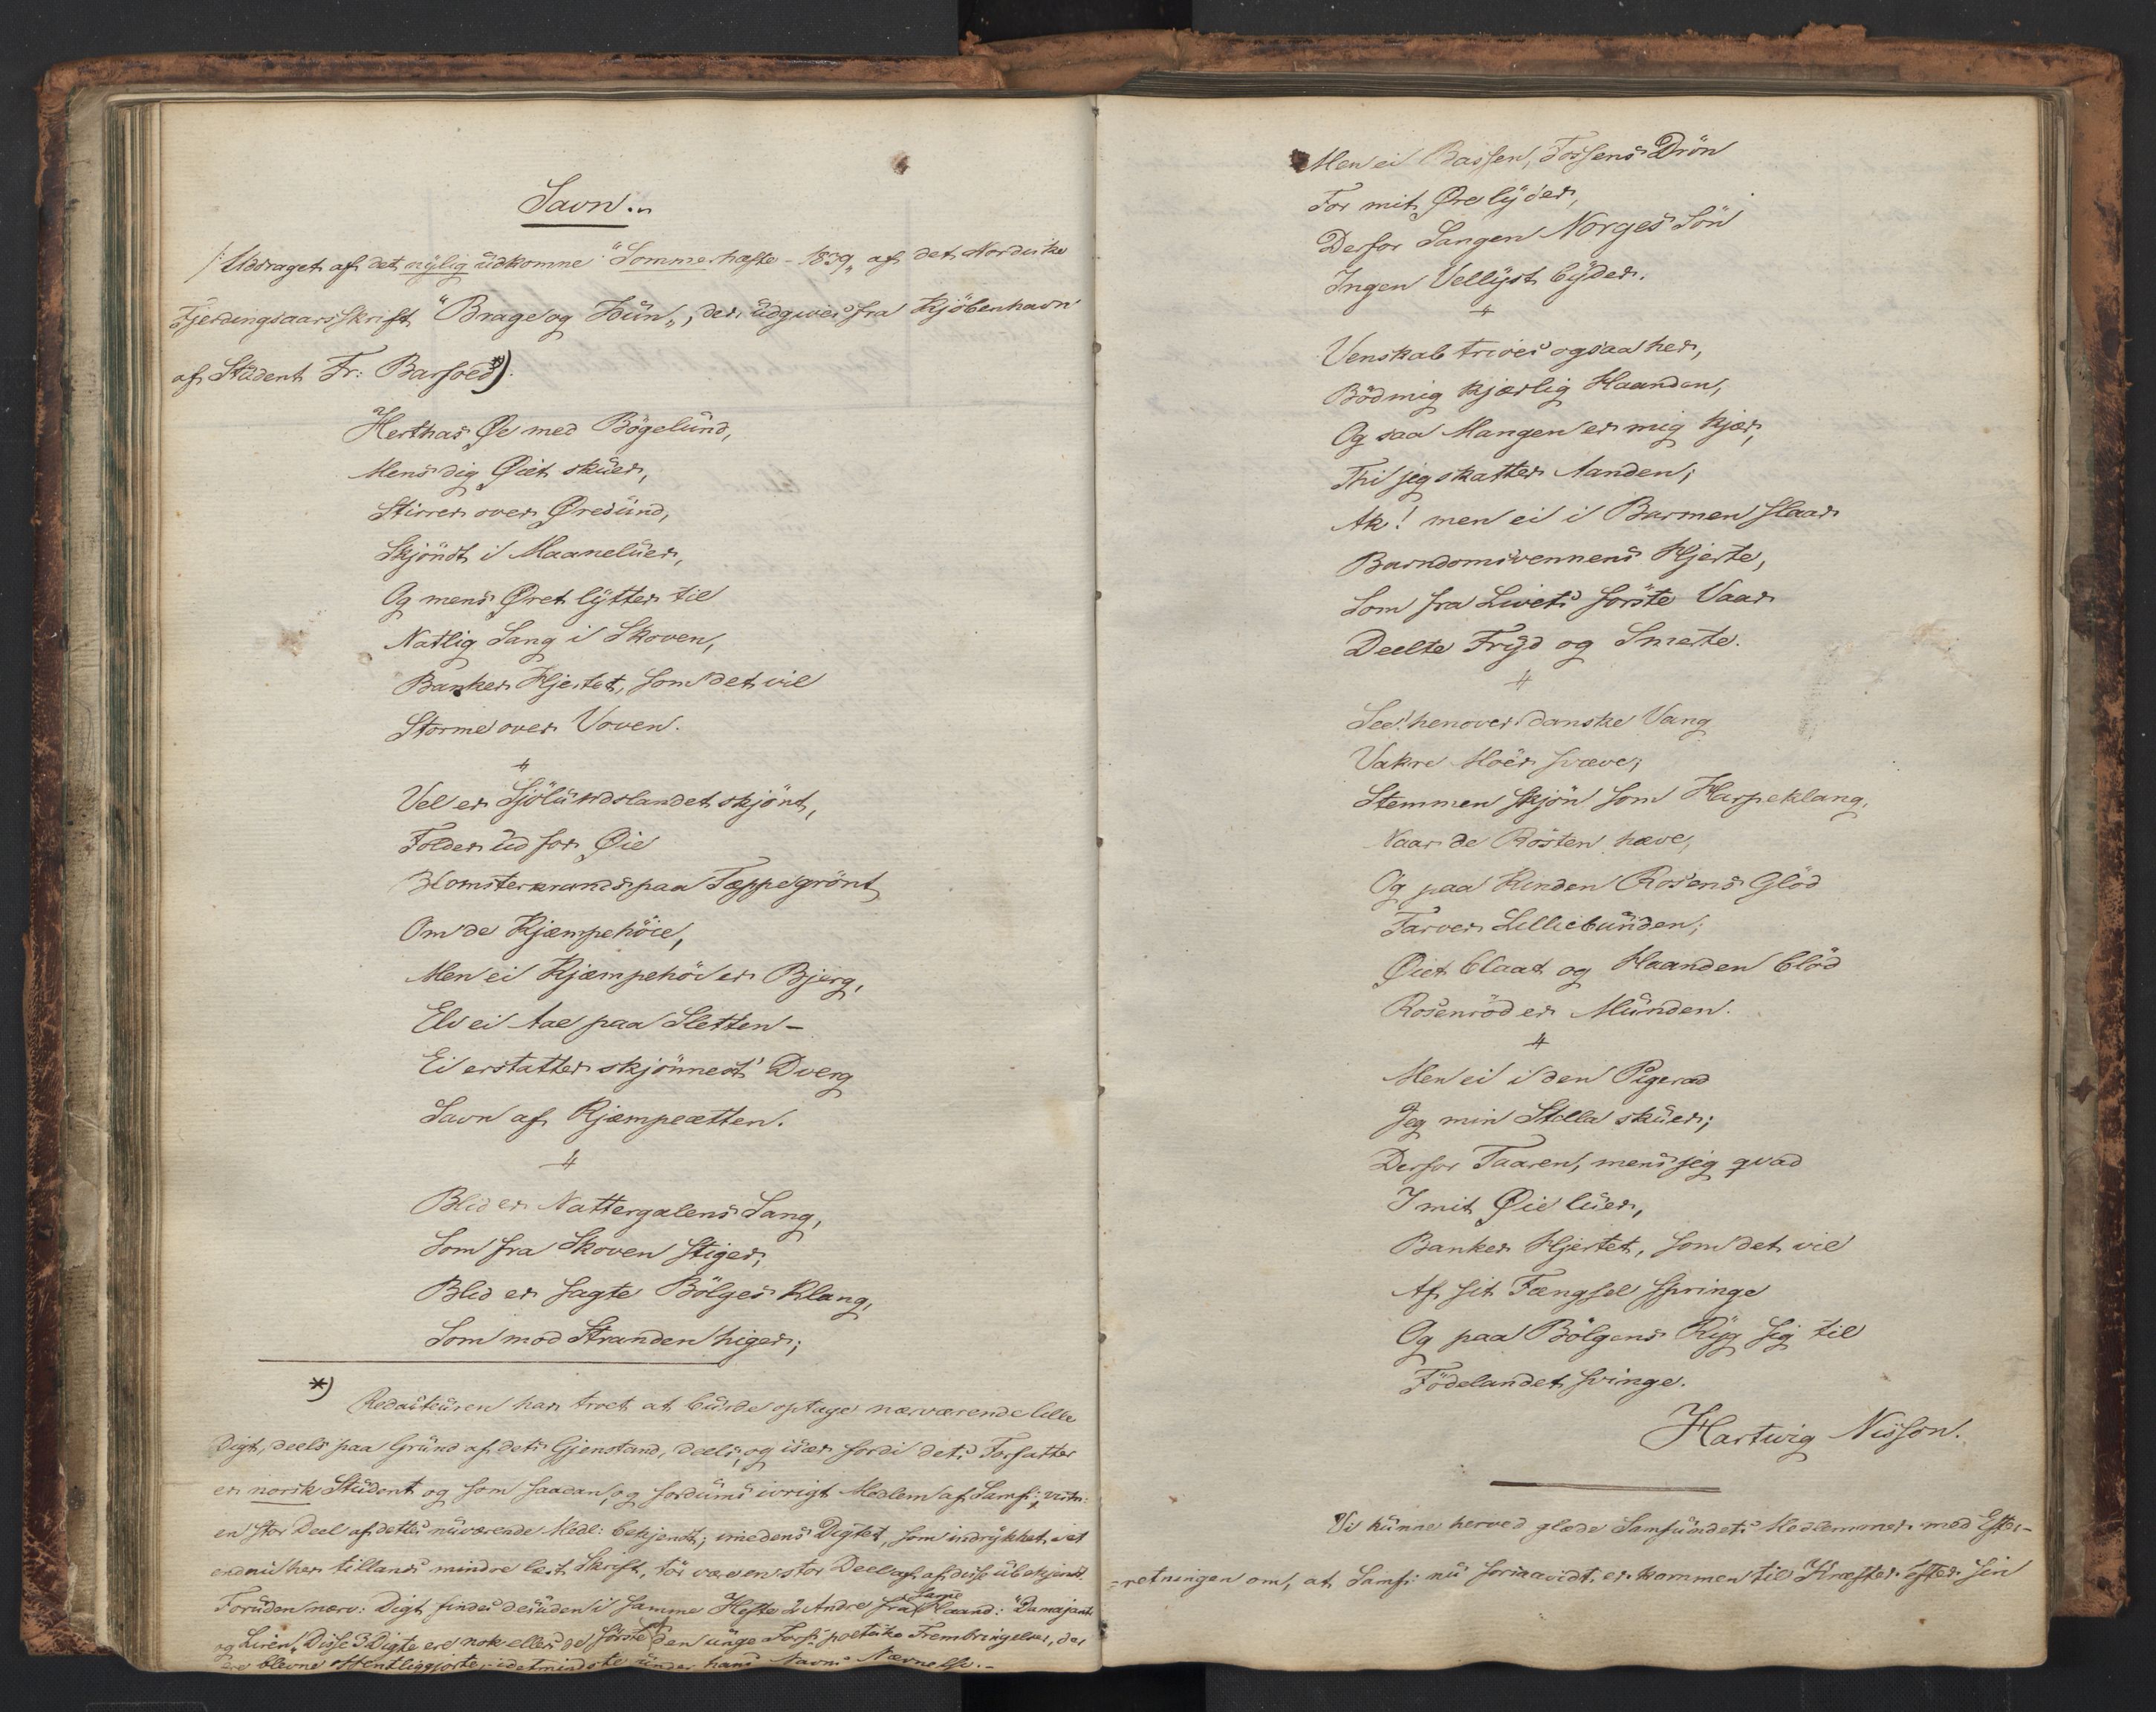 Savn.
/: Uddraget af det nylig udkomne "Sommerhæfte - 1839" af det Nordiske
Fjerdingsaarsskrift "Brage og Idun", der udgives fra Kjöbenhavn
af Student Fr: Barfoed *).
Herthas Øe med Bögelund,
Mens dig Øiet skuer,
Stirrer over Øresund,
Skjöndt i Maaneluer,
Og mens Øret lytter til
Natlig Sang i Skoven,
Banker Hjertet, som det vil
Storme over Voven.
Vel er Sjölundslandet skjönt,
Folder ud for Øie
Blomsterkrands paa Tæppe grönt
Om de Kjæmpehöie,
Men ei Kjæmpehöi er Bjerg,
Elv ei Aae paa Sletten -
Ei erstatter skjönnest' Dverg
Savn af Kjæmpeætten.
Blid er Nattergalens Sang,
Som fra Skoven stiger,
Blid er sagte Bölges Klang,
Som mod Stranden higer;
*) Redacteuren har troet at burde optage nærværende lille
Digt, deels paa Grund af dets Gjenstand, deels, og især fordi dets Forfatter
er norsk Student og som saadan, og fordums ivrigt Medlem af Samf:,
en stor Deel af dettes nuværende Medl: bekjendt; imedens Digtet, som indrykket i et
endnu her tillands mindre læst Skrift, tör være en stor Deel af disse ubekjendt.
Foruden nærv: Digt findes desuden i samme Hefte 2 Andre fra samme Haand:
og Liren. Disse 3 Digte ere nok ellers de förste af den unge Forf: poetiske Frembringelser, der
ere blevne offentliggjorte, idetmindste under hans Navns Nævnelse. -
Men ei Bassen, Fossens Drön
For mit Øre lyder,
Derfor Sangen Norges Sön
Ingen Vellyst byder.
Venskab trives ogsaa her,
Böd mig kjærlig Haanden,
Og saa Mangen er mig kjær,
Thi jeg skatter Aanden;
Ak! men ei i Barmen slaar
Barndomsvennens Hjerte,
Som fra Livets förste Vaar
Deelte Fryd og Smerte.
See! henover danske Vang
Vakre Möer svæve;
Stemmen skjön som Harpeklang,
Naar de Rösten hæve,
Og paa Kinden Rosens Glöd
Farver Lilliebunden;
Øiet blaat og Haanden blöd
Rosenröd er Munden.
Men ei i den Pigerad
Jeg min Stella skuer;
Derfor Taaren, mens jeg qvad
I mit Øie luer,
Banker Hjertet, som det vil
Af sit Fængsel springe
Og paa Bölgens Ryg sig til
Födelandet svinge.
Hartvig Nisson.
Vi kunne herved glæde Samfundets Medlemmer med Efter-
=retningen om, at Samf: nu forsaavidt er kommen til Kræfter efter sin